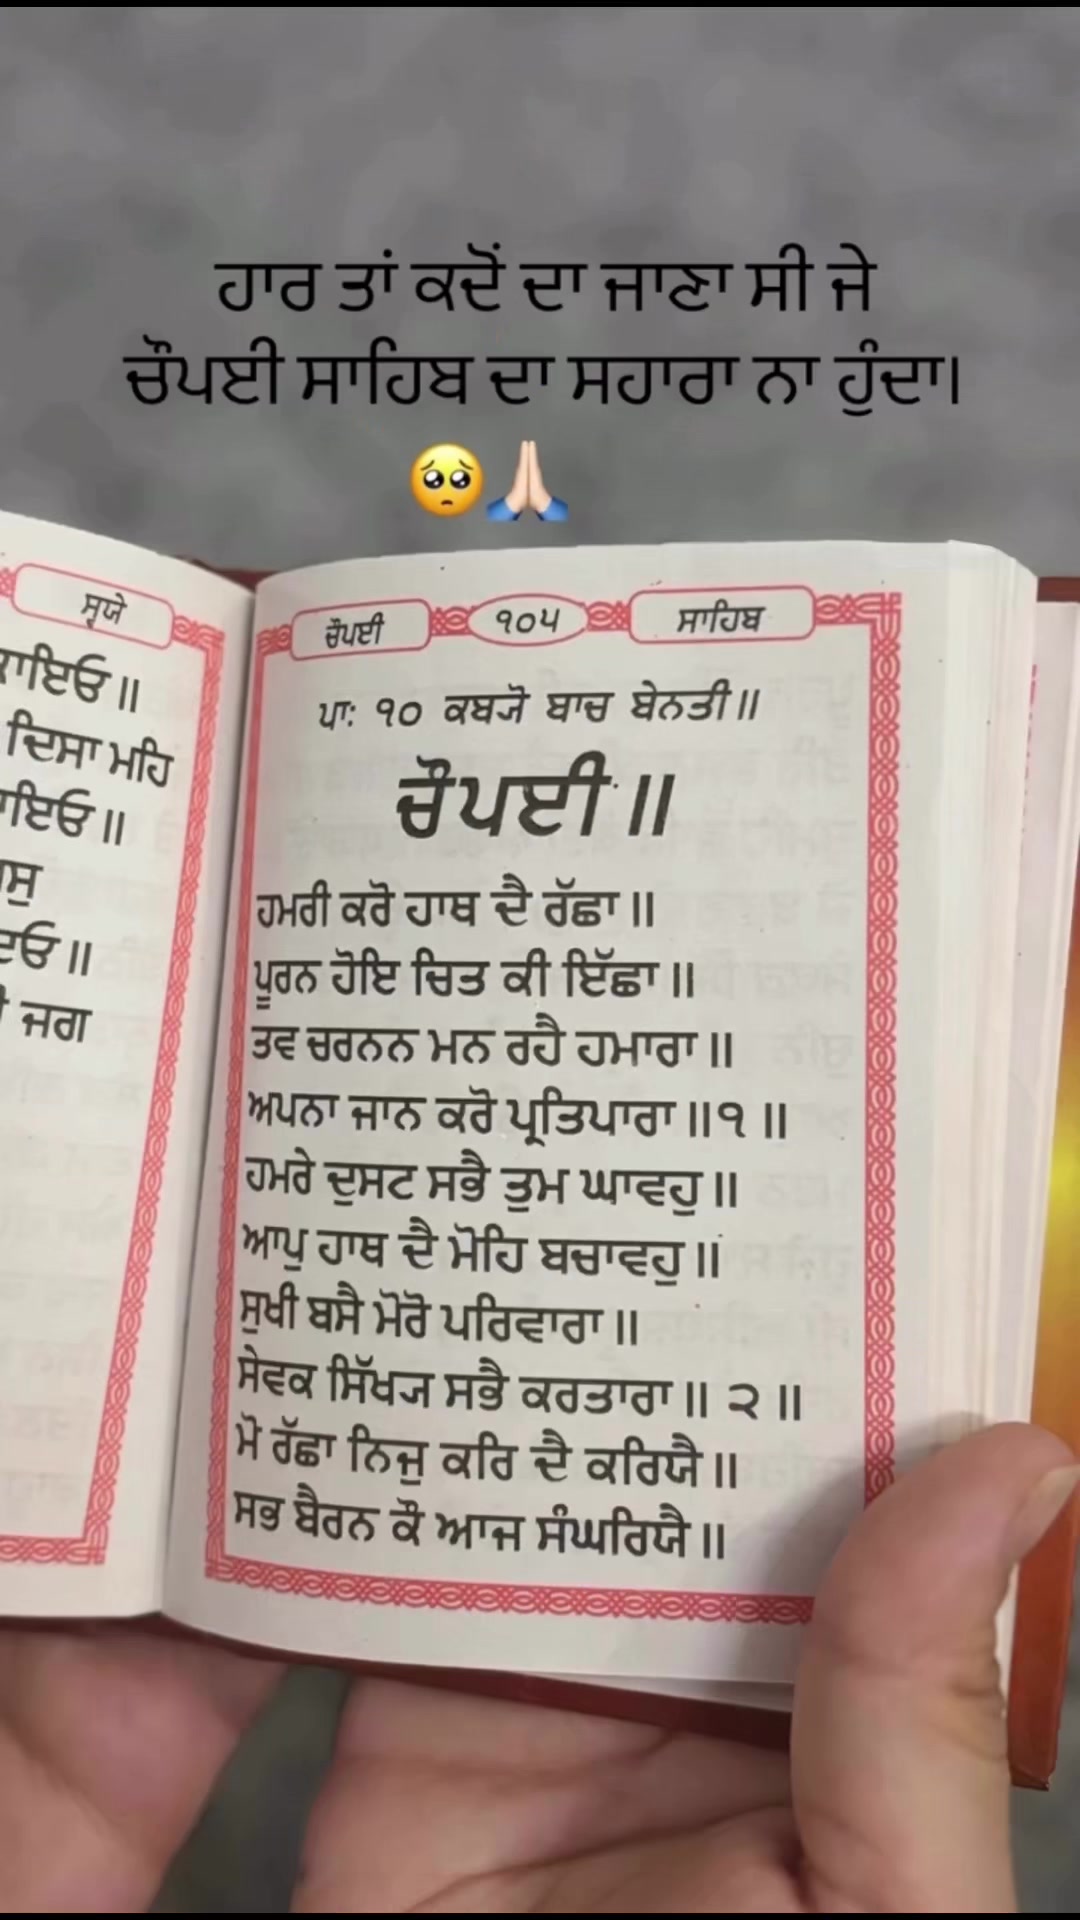 ਹਾਰ ਤਾਂ ਕਦੋਂ ਦਾ ਜਾਣਾ ਸੀ ਜੇ
ਚੌਪਈ ਸਾਹਿਬ ਦਾ ਸਹਾਰਾ ਨਾ ਹੁੰਦਾ।
🥺🙏🏻
ਸ੍ਵਯੇ
ਦਿਸਾ ਮਹਿ
ਜਗ
ਚੌਪਈ ੧੦੫ ਸਾਹਿਬ
ਪਾ: ੧੦ ਕਬ੍ਯੋ ਬਾਚ ਬੇਨਤੀ॥
ਚੌਪਈ॥
ਹਮਰੀ ਕਰੋ ਹਾਥ ਦੈ ਰੱਛਾ॥
ਪੂਰਨ ਹੋਇ ਚਿਤ ਕੀ ਇੱਛਾ॥
ਤਵ ਚਰਨਨ ਮਨ ਰਹੈ ਹਮਾਰਾ॥
ਅਪਨਾ ਜਾਨ ਕਰੋ ਪ੍ਰਤਿਪਾਰਾ॥੧॥
ਹਮਰੇ ਦੁਸਟ ਸਭੈ ਤੁਮ ਘਾਵਹੁ॥
ਆਪੁ ਹਾਥ ਦੈ ਮੋਹਿ ਬਚਾਵਹੁ॥
ਸੁਖੀ ਬਸੈ ਮੋਰੋ ਪਰਿਵਾਰਾ॥
ਸੇਵਕ ਸਿੱਖ੍ਯ ਸਭੈ ਕਰਤਾਰਾ॥ ੨॥
ਮੋ ਰੱਛਾ ਨਿਜੁ ਕਰਿ ਦੈ ਕਰਿਯੈ॥
ਸਭ ਬੈਰਨ ਕੌ ਆਜ ਸੰਘਰਿਯੈ॥